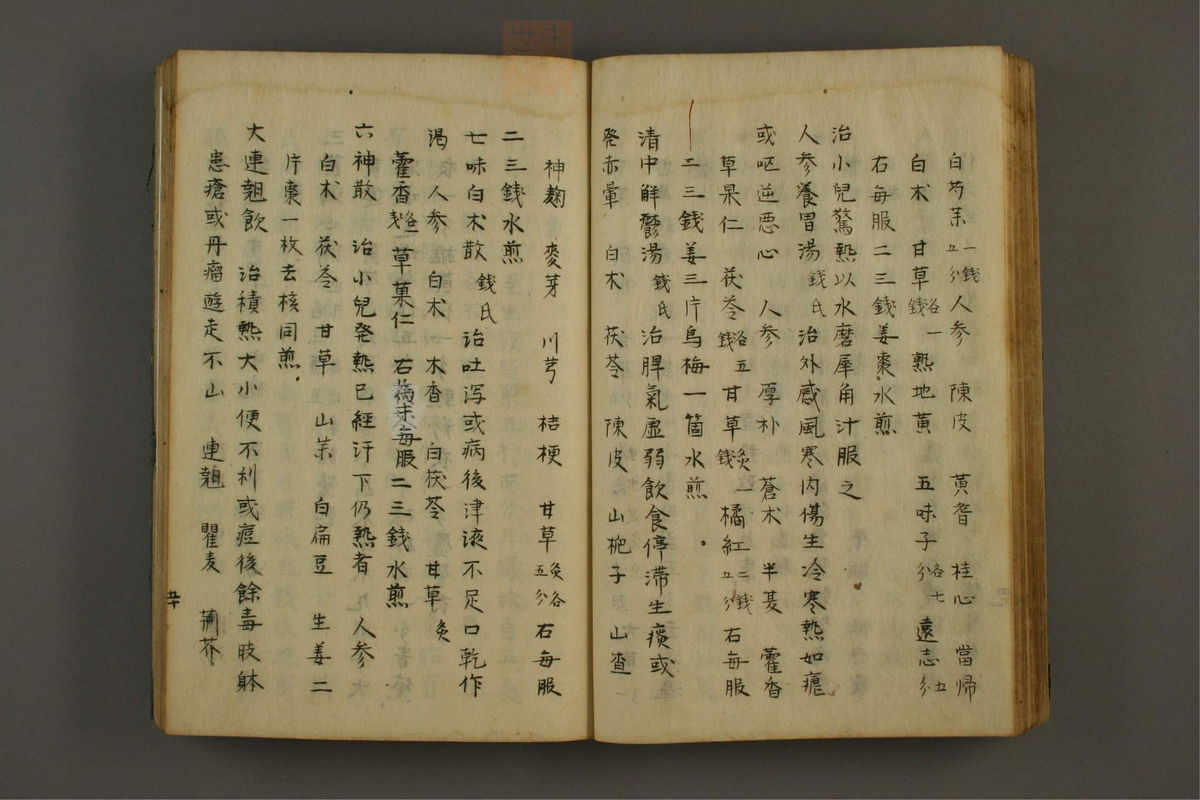 白芍茱一錢五分人参 陳皮 黄耆 桂心 當帰
白朮 甘草各一錢 熟地黄 五味子各七分 遠志五分
右毎服二三錢姜棗水煎
治小兒驚熱以水磨犀角汁服之
人参養胃湯錢氏 治外感風寒内傷生冷寒熱如瘧
或呕逆悪心 人参 厚朴 蒼术 半夏 藿香
草果仁 茯苓各五錢 甘草炙一錢 橘紅二錢五分右毎服
二三錢姜三片烏梅一箇水煎
清中解欝湯錢氏 治脾氣虚弱飲食停滞生痰或
発赤暈 白术 茯苓 陳皮 山栀子 山査
神麹 麥芽 川芎 桔梗 甘草炙各五分 右毎服
二三錢水煎
七味白术散錢氏 治吐瀉或病後津液不足口乾作
渇 人参 白术 木香 白茯苓 甘草炙
藿香各二戔 草菓仁 右為末毎服二三錢水煎
六神散 治小兒発熱已經汗下仍熱者 人参
白术 茯苓 甘草 山茱 白扁豆 生姜二
片棗一枚去核同煎
大連翹飲 治積熱大小便不利或痘後餘毒肢躰
患瘡或丹瘤遊走不山 連翹 瞿麦 荊芥
五十